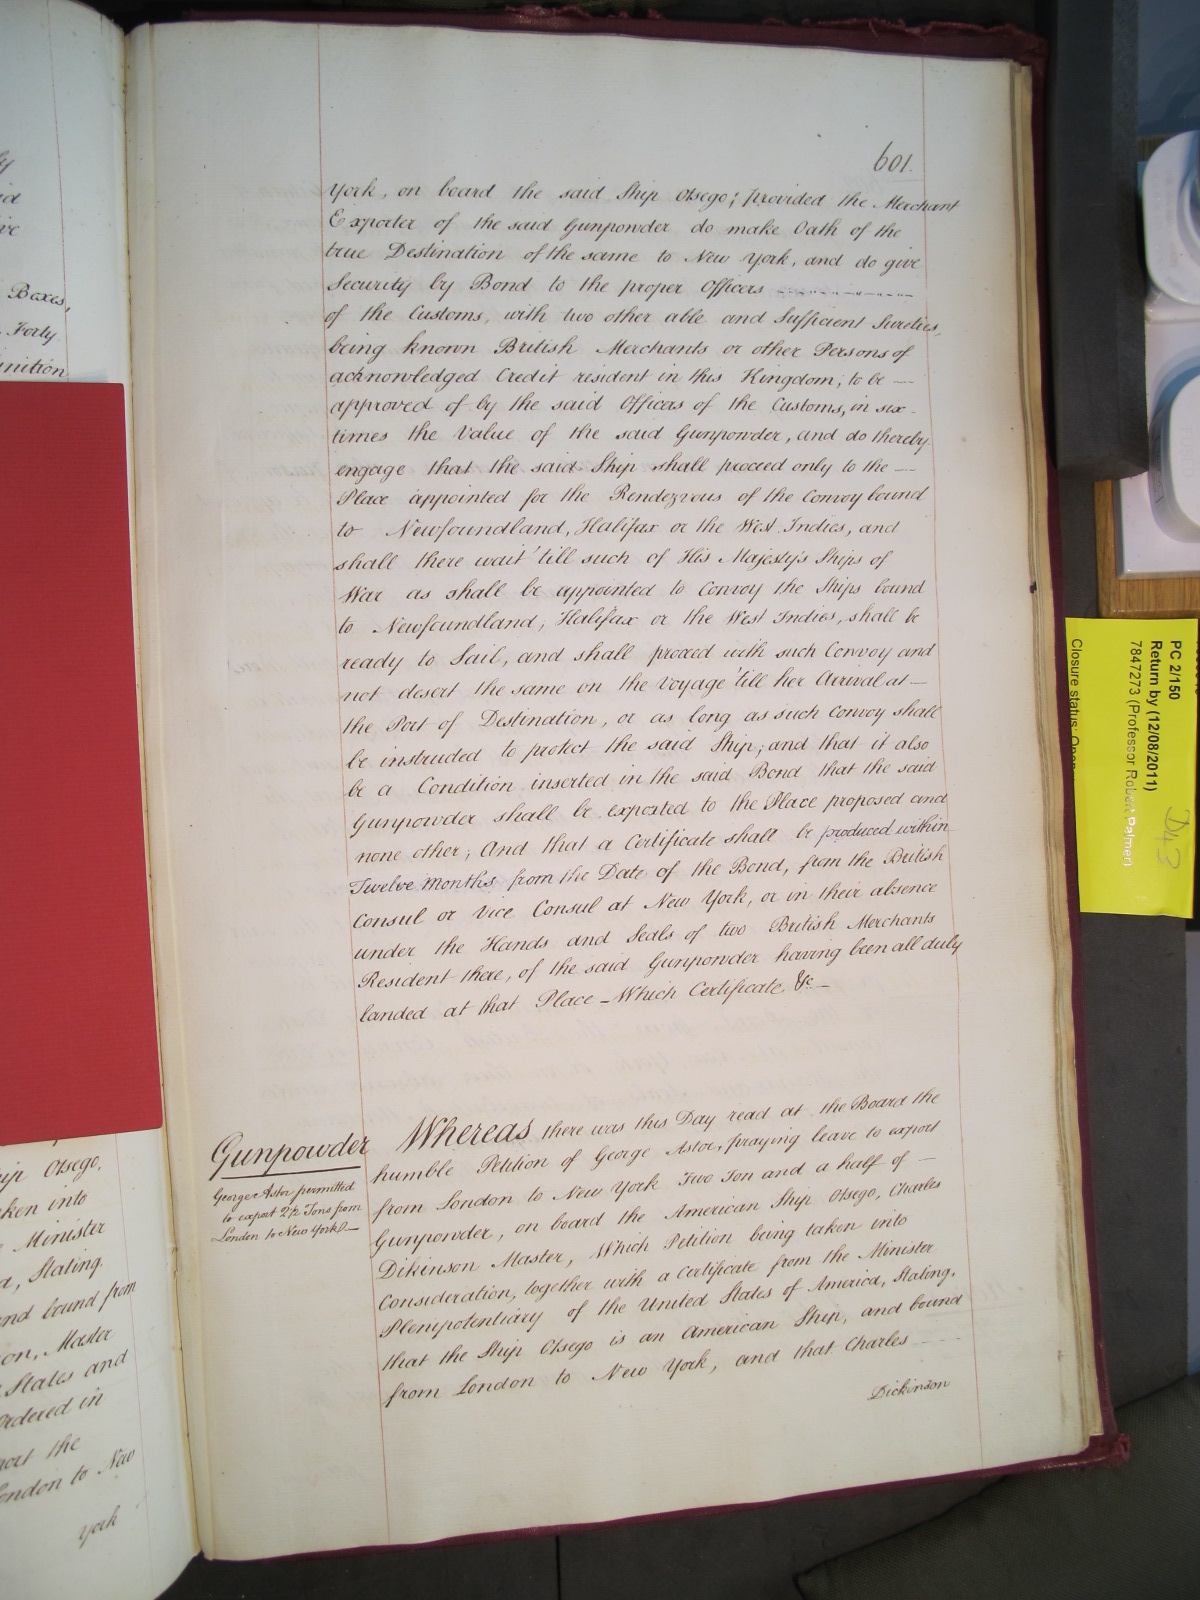 601.
York, on board the said Ship Otsego; provided the Merchant
Exporter of the said Gunpowder do make Oath of the
true Destination of the same to New York, and do give
Security by Bond to the proper Officers
of the Customs, with two other able and Sufficient Sureties,
being known British Merchants or other Persons of
acknowledged Credit resident in this Kingdom; to be —
approved of by the said Officers of the Customs, in six-
times the Value of the said Gunpowder, and do thereby
engage that the said Ship shall proceed only to the —
Place appointed for the Rendezvous of the Convoy bound
to Newfoundland, Halifax or the West Indies, and
shall there wait 'till such of His Majesty's Ships of
War as shall be appointed to Convoy the Ships bound
to Newfoundland, Halifax or the West Indies, shall be
ready to Sail, and shall proceed with such Convoy and
not desert the same on the Voyage 'till her Arrival at —
the Port of Destination, or as long as such Convoy shall
be instructed to protect the said Ship; and that it also
be a Condition inserted in the said Bond that the said
Gunpowder shall be exported to the Place proposed and
none other; And that a Certificate shall be produced within
Twelve Months from the Date of the Bond, from the British
Consul or Vice Consul at New York, or in their absence
under the Hands and Seals of two British Merchants
Resident there, of the said Gunpowder having been all duly
landed at that Place – Which Certificate &c —
Gunpowder
George Astor permitted
to export 2½ Tons from
London to New York —
Whereas there was this Day read at the Board the
humble Petition of George Astor, praying leave to export
from London to New York Two Ton and a half of —
Gunpowder, on board the American Ship Otsego, Charles
Dikinson Master, Which Petition being taken into
Consideration, together with a Certificate from the Minister
Plenipotentiary of the United States of America, Stating,
that the Ship Otsego is an American Ship, and bound
from London to New York, and that Charles —
Dickinson
Boxes,
Forty
Otsego,
into
Minister
Stating
and bound from
Master
States and
ordered in
the
London to New
York
PC 2/150
Return by (12/08/2011)
7847273 (Professor Robert Palmer)
Closure status: Open
D43